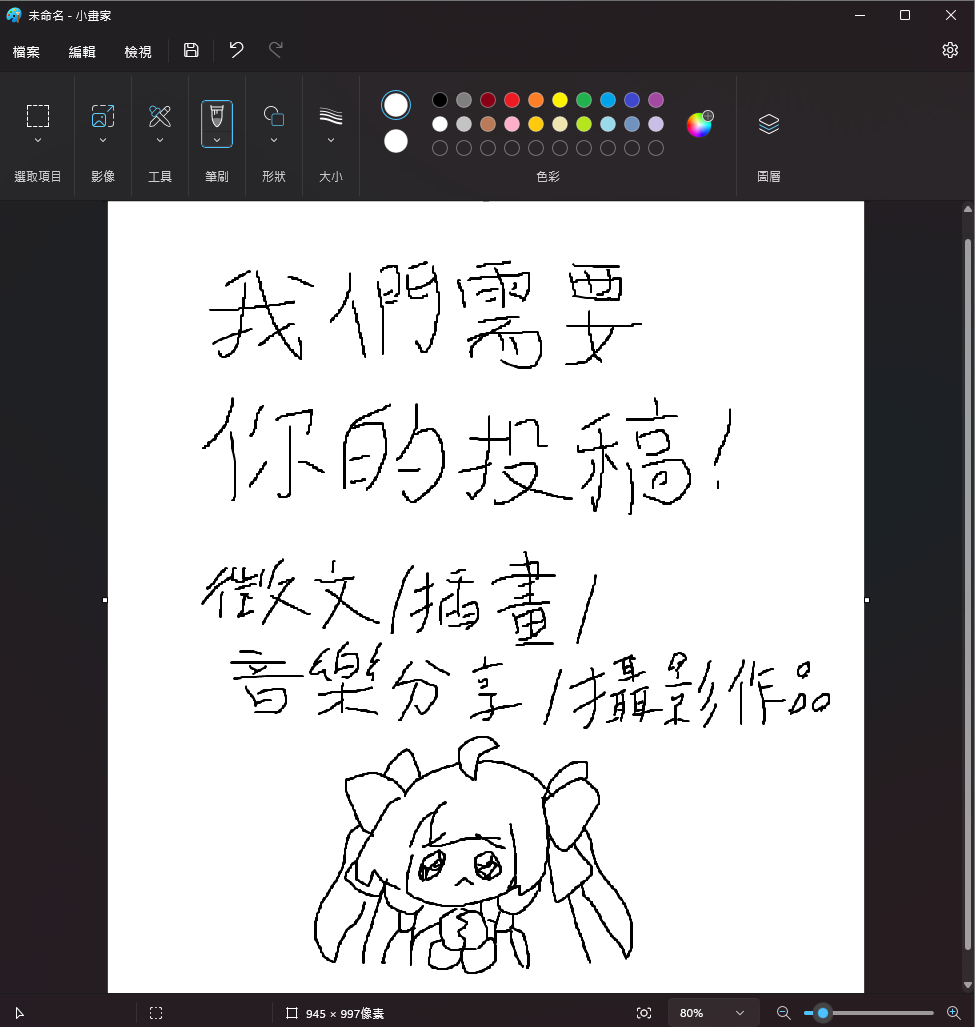 未命名 - 小畫家
檔案 編輯 檢視
選取項目 影像 工具 筆刷 形狀 大小 色彩 圖層
我們需要
你的投稿!
徵文/插畫/
音樂分享/攝影作品
945 × 997像素 80%